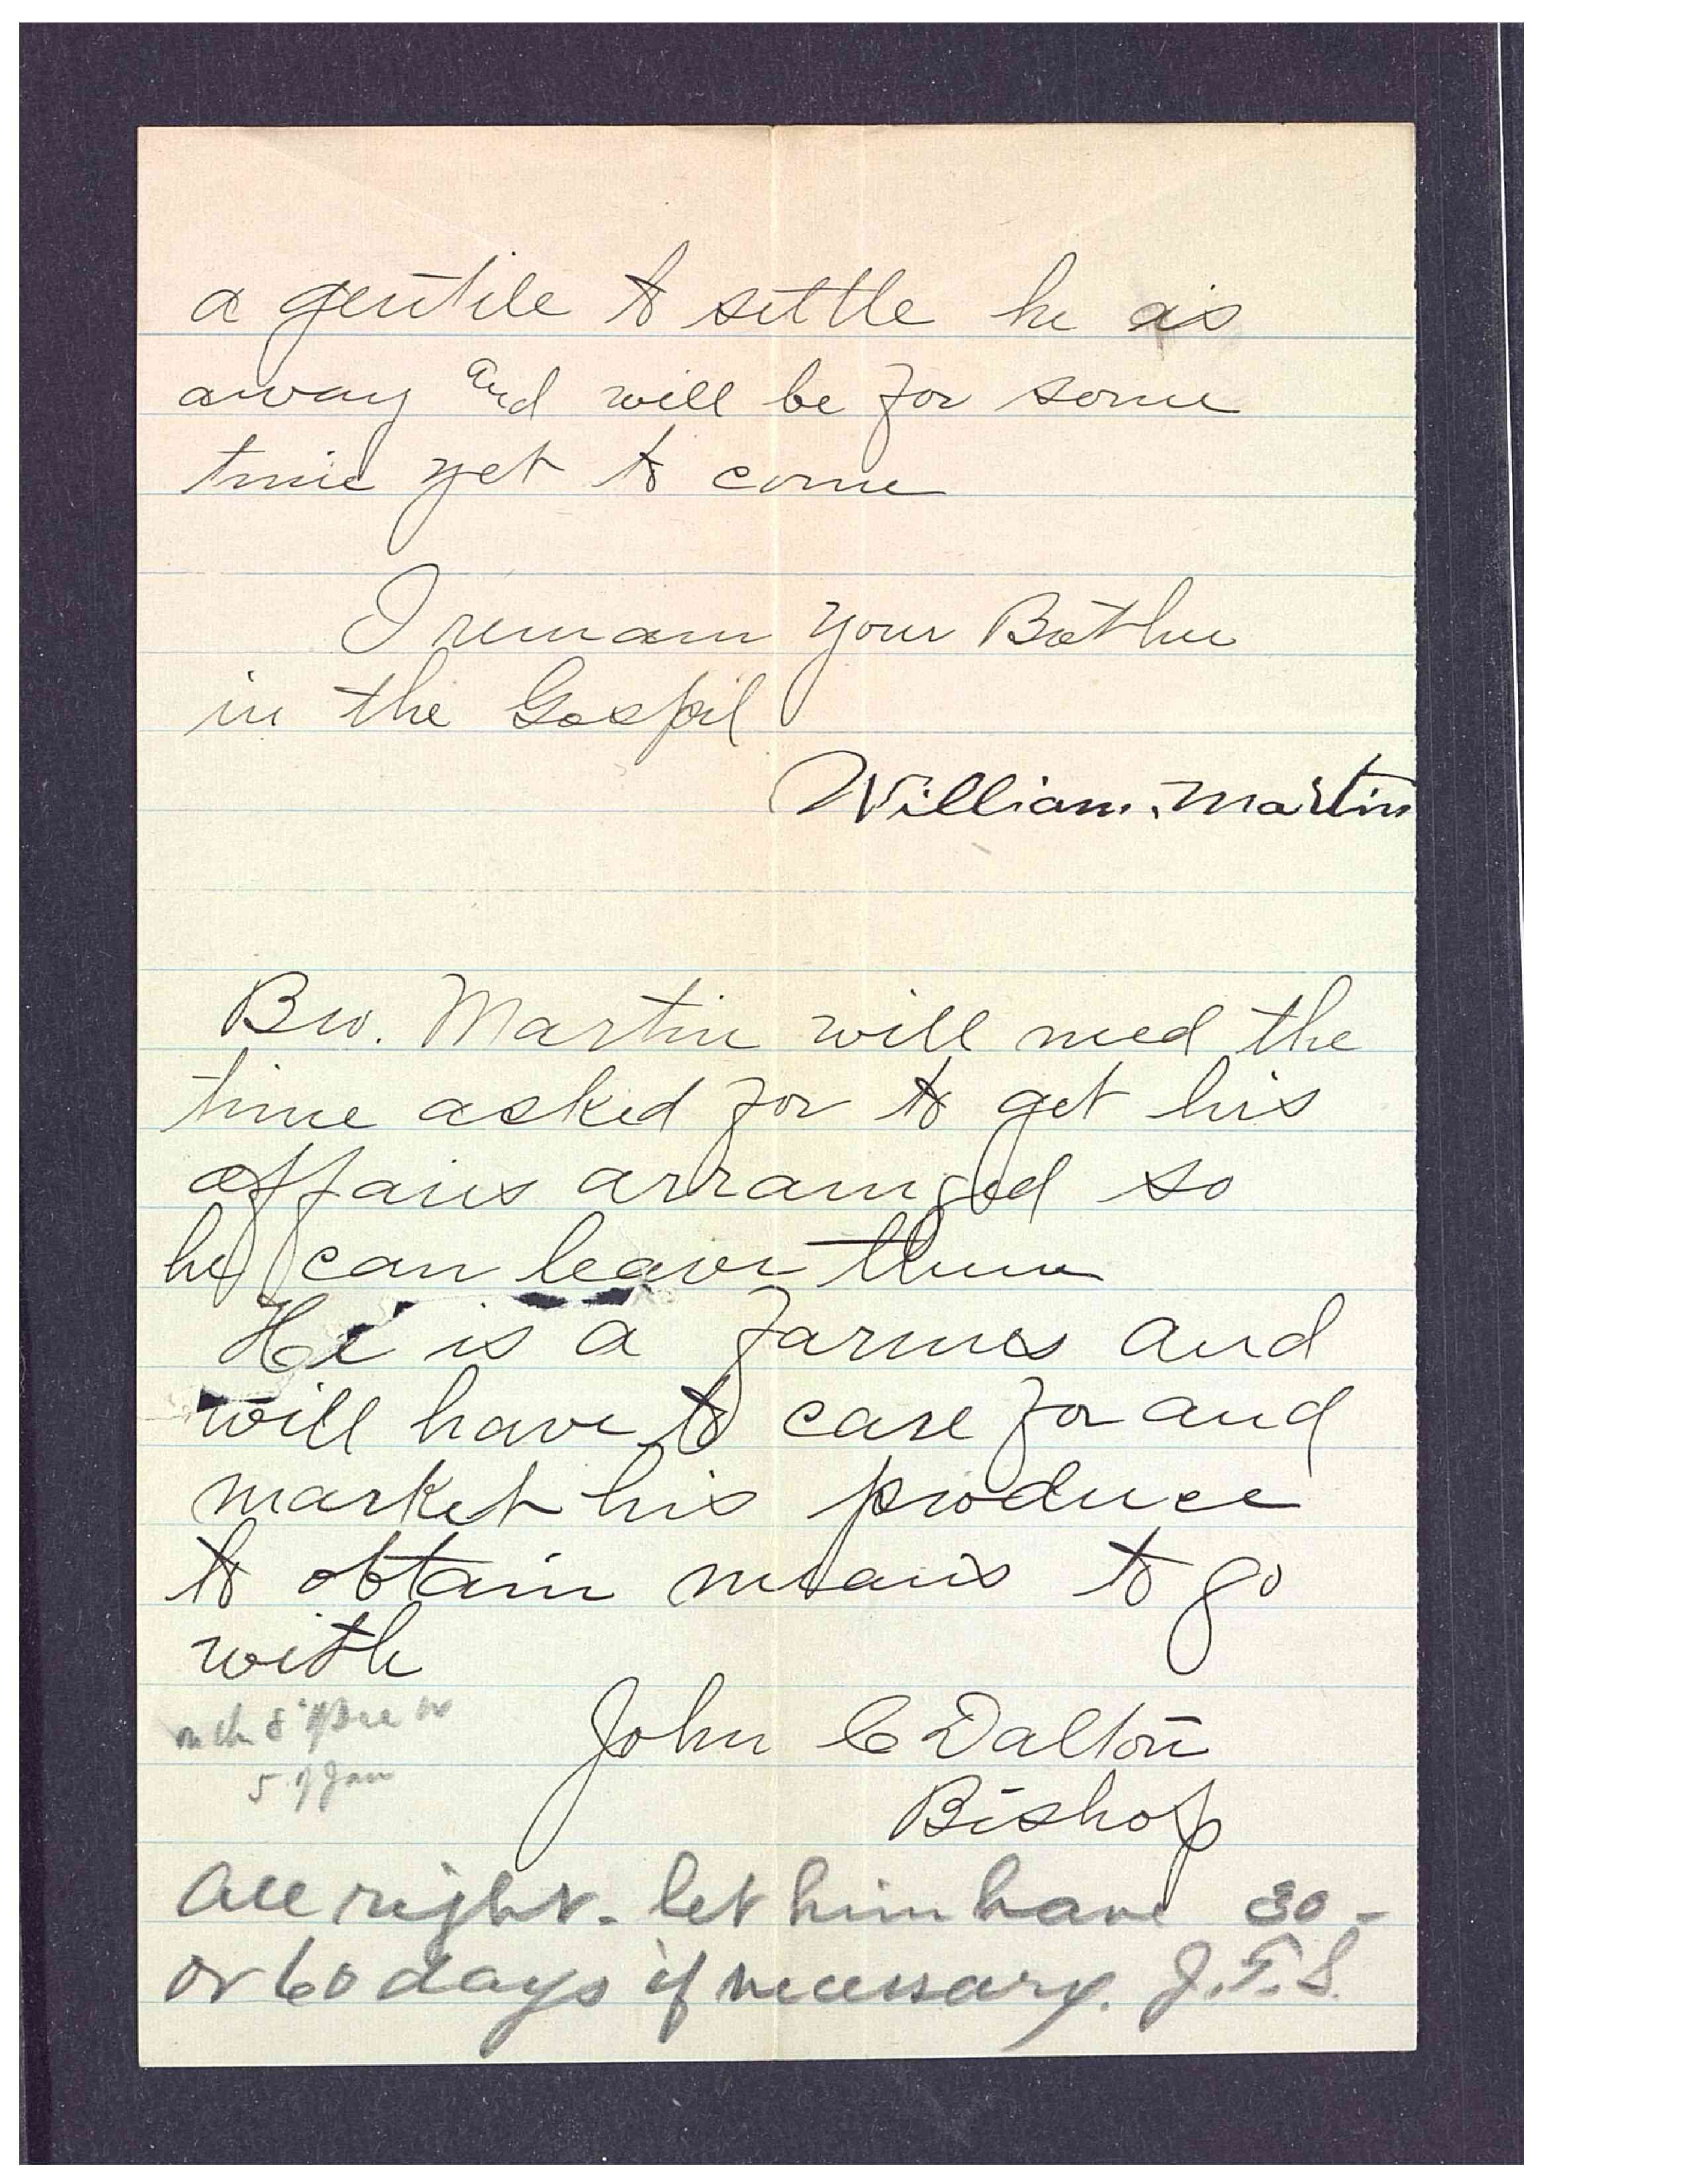 a gentile to settle he is
away and will be for some
time yet to come
I remain your Bother
in the Gospel
William. Martin
Bro. Martin will need the
time asked for to get his
affairs arranged so
he can leave them
He is a farmer and
will have to care for and
market his produce
to obtain means to go
with
on the 8" of Dec or
5 of Jan
John C Dalton
Bishop
All right. let him have 30 -
or 60 days if necessary. J.F.S.